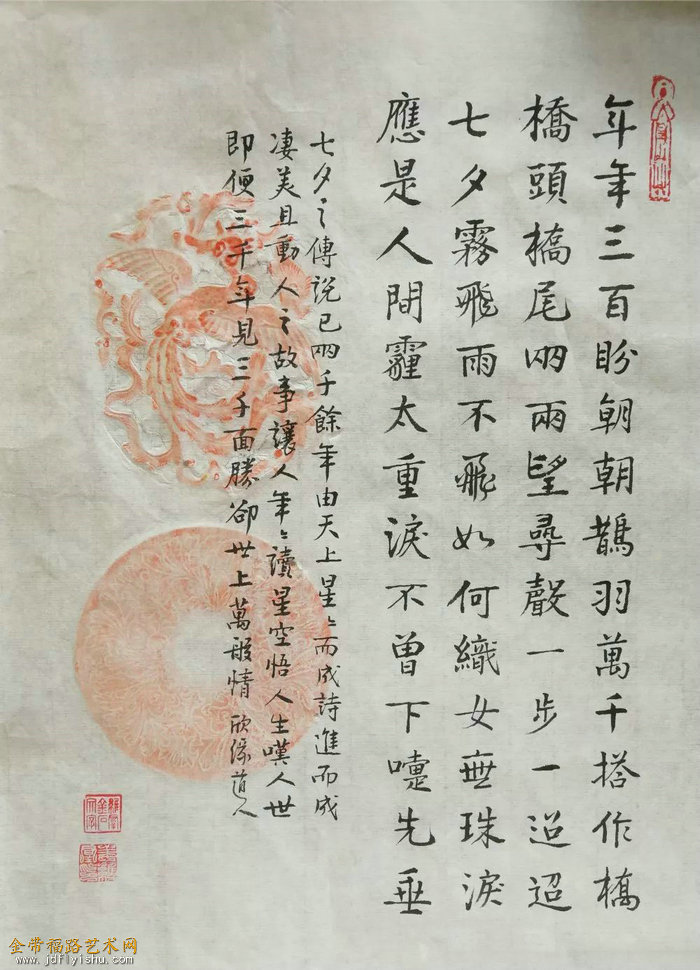 年年三百盼朝朝鵲羽萬千搭作橋
橋頭橋尾兩兩望尋聲一步一迢迢
七夕霧飛雨不飛如何織女無珠淚
應是人間霾太重淚不曾下嚏先垂
七夕之傳說已兩千餘年由天上星星而成詩進而成
凄美且動人之故事讓人年年讀星空悟人生嘆人世
即便三千年見三千面勝卻世上萬般情 欣緣道人
金带福路艺术网
www.jdflyishu.com